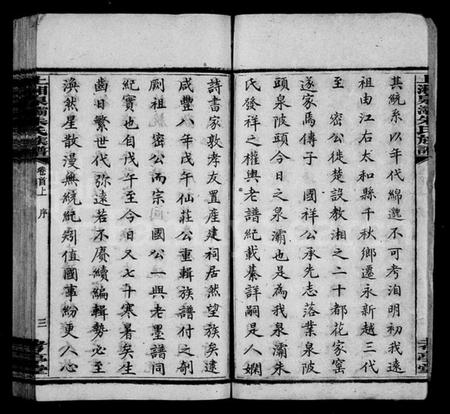 其統系以年代綿邈不可考洎明初我遠
祖由江右太和縣千秋鄉遷永新越三代
至 密公徙楚設教湘之二十都花窰
遂家馬傳子 國祥公承先志落業泉陂
頭泉陂頭今日之泉灞也是為我泉灞朱
氏發祥之權輿老譜紀載綦詳嗣是人嫻
詩書家敦孝友置產建祠居然望族矣逮
咸豐八年戊午仙莊公重輯族譜付之剞
劂祖 密公而宗 國公一與老墨譜同
紀實也自戊午至今日又七十寒暑矣生
齒日繁世代弥遠若不賡續編輯勢必至
渙然星散漫無統紀矧值國事紛更人心
上湘泉灞朱氏族譜
卷首上 序
三